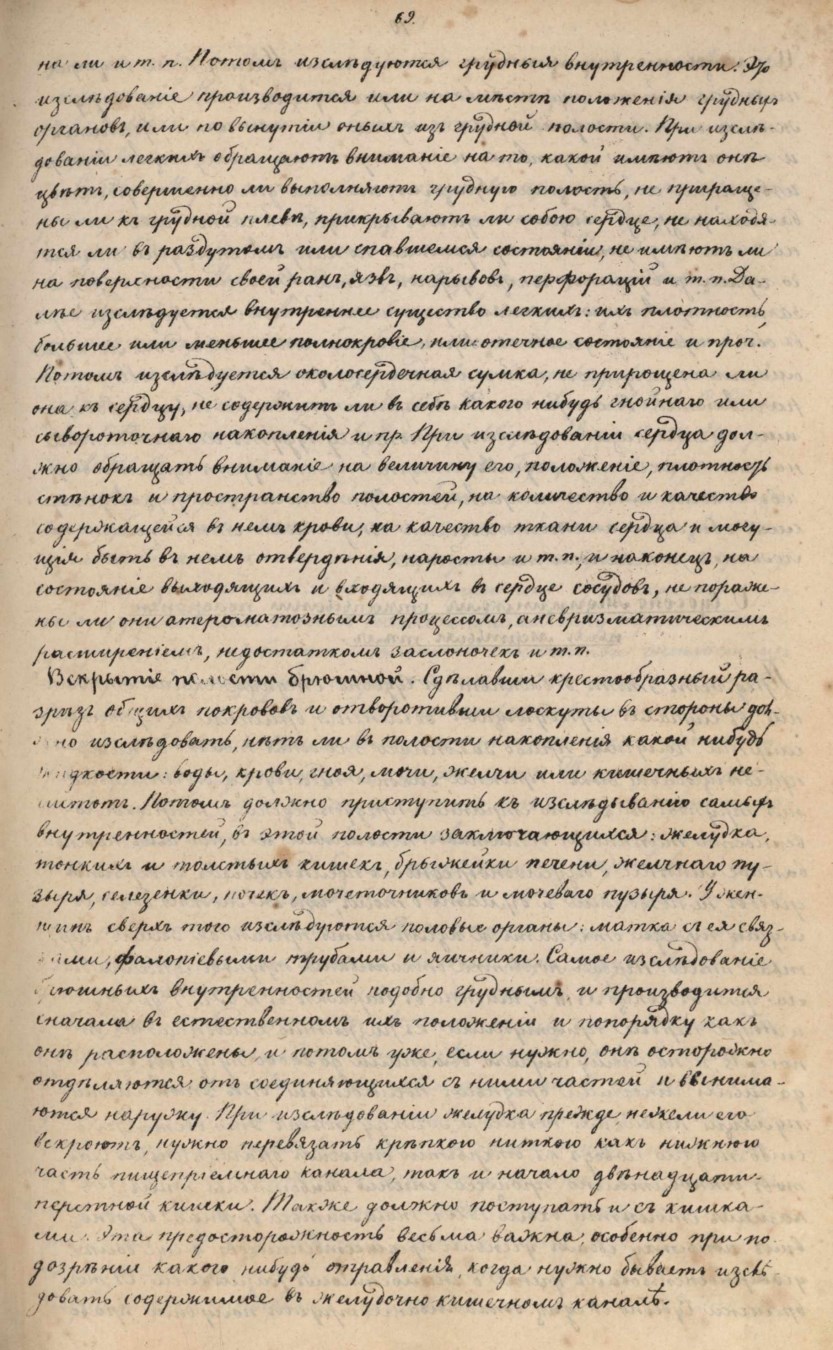 69.
на ли и т. п. Потомъ изслѣдуются грудныя внутренности. Это
изслѣдованіе производится или на мѣстѣ положенія грудныхъ
органовъ, или по вынутіи оныхъ изъ грудной полости. При изслѣ-
дованіи легкихъ обращаютъ вниманіе на то, какой имѣютъ онѣ
цвѣтъ, совершенно ли выполняютъ грудную полость, не приращe-
ны ли къ грудной плевѣ, прикрываютъ ли собою сердце, не находя-
тся ли въ раздутомъ или спавшемся состояніи, не имѣютъ ли
на поверхности своей ранъ, язвъ, нарывовъ, перфорацій и т. п. Да-
лѣе изслѣдуется внутреннее существо легкихъ: ихъ плотность,
большее или меньшее полнокровіе, или отечное состояніе и проч.
Потомъ изслѣдуется околосердечная сумка, не прирощена ли
она къ сердцу, не содержитъ ли въ себѣ какого нибудь гнойнаго или
сывороточнаго накопленія и пр. При изслѣдованіи сердца дол-
жно обращать вниманіе на величину его, положеніе, плотность
стѣнокъ и пространство полостей, на количество и качество
содержащейся въ немъ крови, на качество ткани сердца и могу-
щія быть въ немъ отвердѣнія, наросты и т. п., и наконецъ, на
состояніе выходящихъ и входящихъ въ сердце сосудовъ, не пораже-
ны ли они атероматознымъ процессомъ, аневризматическимъ
расширеніемъ, недостаткомъ заслоночекъ и т. п.
Вскрытіе полости брюшной. Сдѣлавши крестообразный ра-
зрѣзъ общихъ покрововъ и отворотивши лоскуты въ стороны дол-
жно изслѣдовать, нѣтъ ли въ полости накопленія какой нибудь
жидкости: воды, крови, гноя, мочи, желчи или кишечныхъ не-
чистотъ. Потомъ должно приступить къ изслѣдыванію самыхъ
внутренностей, въ этой полости заключающихся: желудка,
тонкихъ и толстыхъ кишекъ, брыжейки печени, желчнаго пу-
зыря, селезенки, почекъ, мочеточниковъ и мочеваго пузыря. У жен-
щинъ сверхъ того изслѣдуются половые органы: матка съ ея связ-
ками, фалопіевыми трубами и яичники. Самое изслѣдованіе
брюшныхъ внутренностей подобно груднымъ и производится
сначала въ естественномъ ихъ положеніи и попорядку какъ
онѣ расположены, и потомъ уже, если нужно, онѣ осторожно
отдѣляются отъ соединяющихся съ ними частей и вынима-
ются наружу. При изслѣдованіи желудка прежде нежели его
вскроютъ, нужно перевязать крѣпкою ниткою какъ нижнюю
часть пищепріемнаго канала, такъ и начало двѣнадцати-
перстной кишки. Также должно поступать и съ кишка-
ми. Эта предосторожность весьма важна, особенно при по
дозрѣніи какого нибудь отравленія, когда нужно бываетъ изслѣ-
довать содержимое въ желудочно кишечномъ каналѣ.